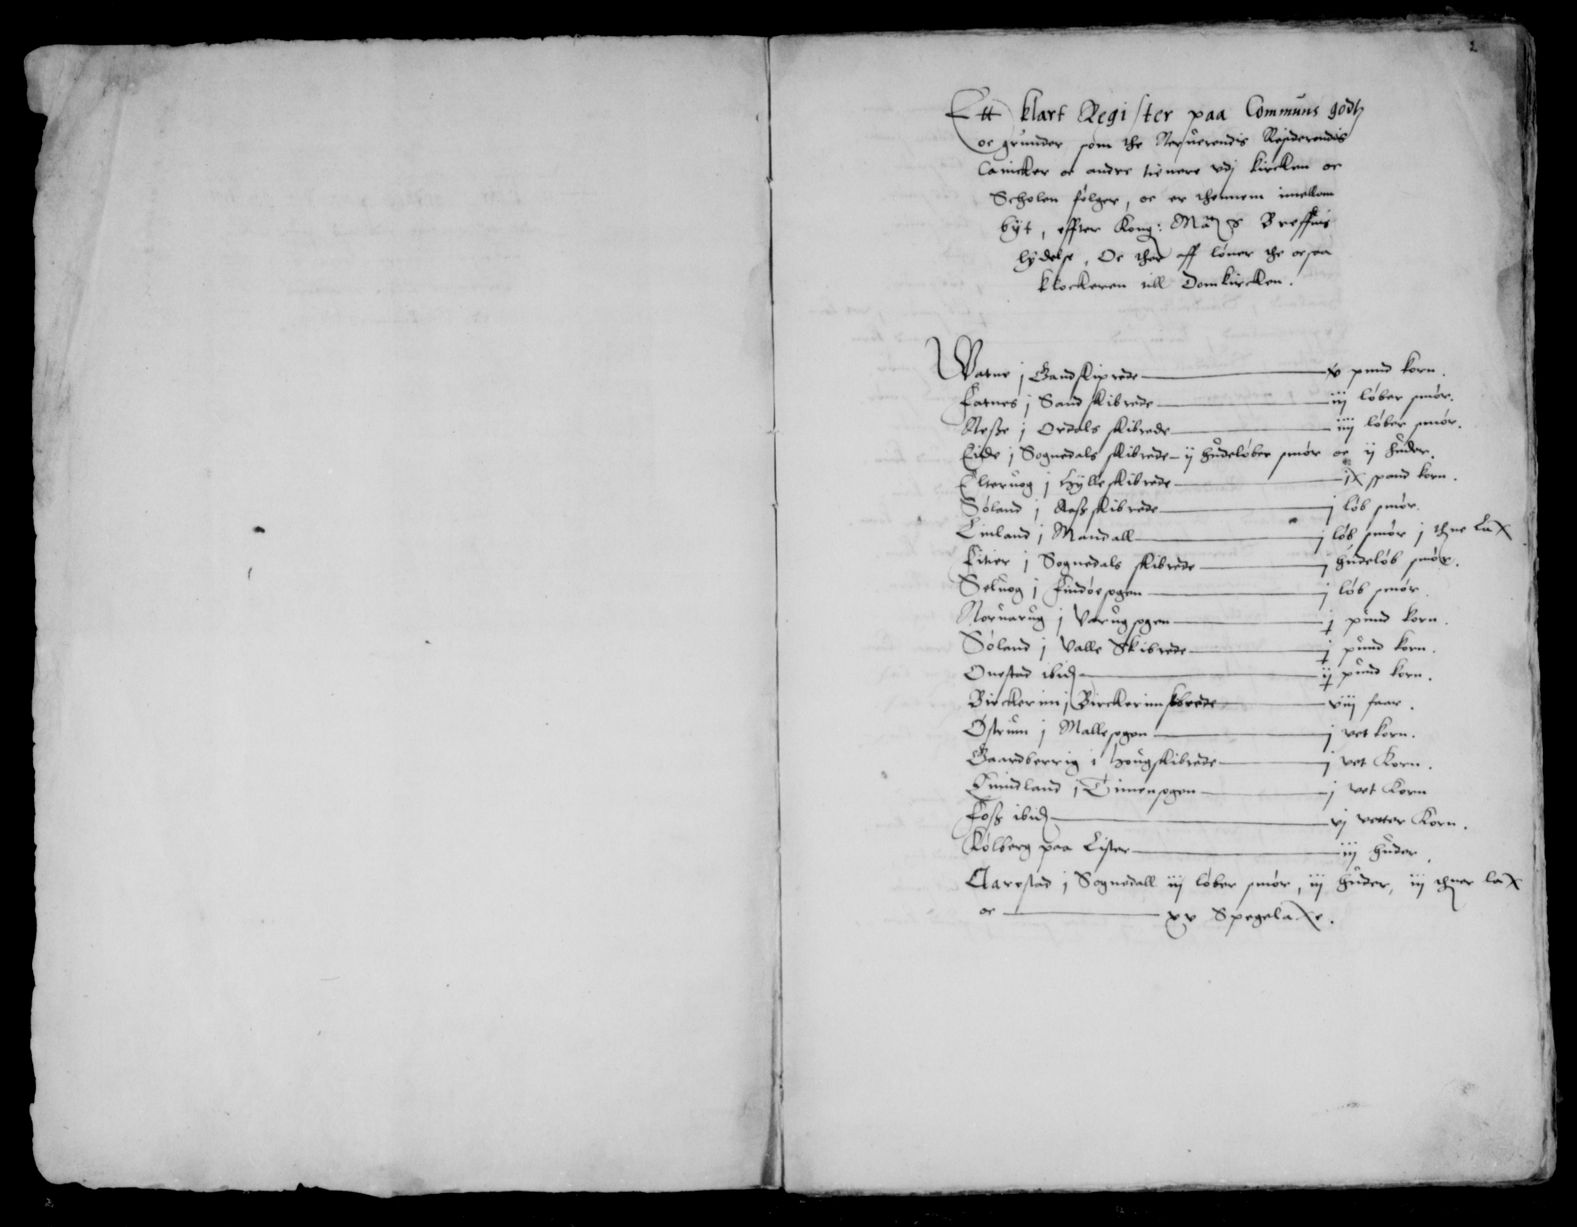 2
Ett klart Register paa Communs godtz
oc grunder som the Residerendis
Canicker oc andre tienere vdj kircken oc
Scholen følger, oc er thennem imellom
byt, effter Kong: Matz Breffuis
lydelse, Oc ther aff løner the ocsaa
klockeren till Domkircken.
Watne j Gandskiprede xv pund korn.
Fatnes j Sandskibrede iij løber smør.
Nesse j Ordals skibrede iiij løber smør.
Eide j Sognedals skibrede ij hudeløber smør oc ij huder.
Elteruog j Hylleskibrede ix spand korn.
Søland j skibrede j løb smør.
Linland j Mandall j løb smør j thne lax
Fitier j Sognedals skibrede j hudeløb smør.
Seluog j Findøesogen j løb smør.
Noruarug j Varugsogen j pund korn.
Søland j Valle Skibrede j pund korn.
Ouestad ibid ij pund korn.
Birckerim j Birckerimskbrede viij faar.
Østrum j Mallesogen j vet korn.
Gaardberrig i Hougskibrede j vet Korn.
Quindland j Timensogen j vet Korn
Foss ibid vj vetter Korn.
Kølberg paa Lister iij huder.
Aarestad j Sognedall iij løber smør, iij huder, iij thner lax
oc xv Spegelaxe.
2